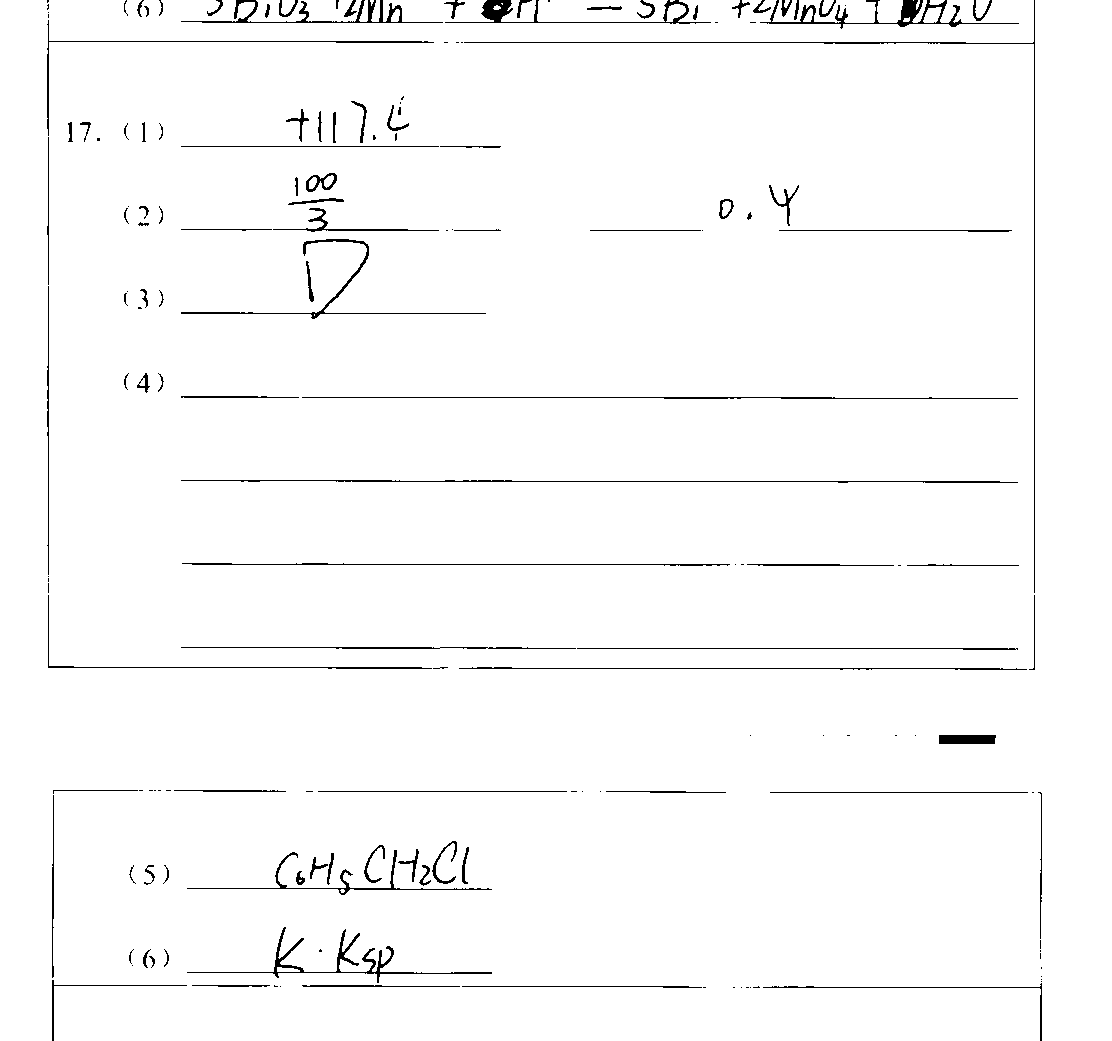 (6) 5BiO3 + 2Mn + H = 5Bi + 2MnO4 + H2O
17. (1) +117.4
(2) 100/3 0.4
(3) D
(4)
(5) C6H5CH2Cl
(6) K·Ksp